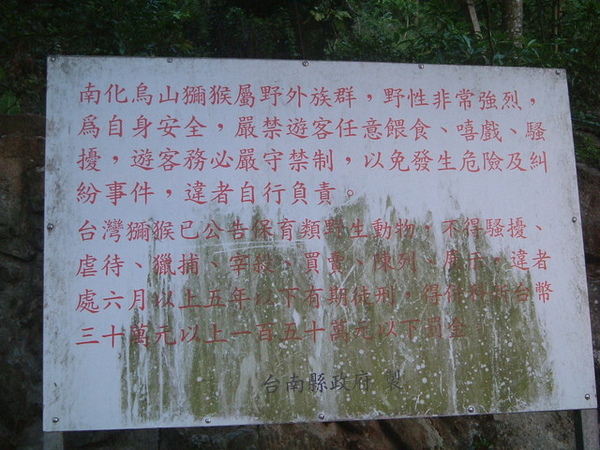 南化烏山獼猴屬野外族群，野性非常強烈，
為自身安全，嚴禁遊客任意餵食、嘻戲、騷
擾，遊客務必嚴守禁制，以免發生危險及糾
紛事件，違者自行負責。
台灣獼猴已公告保育類野生動物，不得騷擾、
虐待、獵捕、宰殺、買賣、陳列、展示，違者
處六月以上五年以下有期徒刑，得併科新台幣
三十萬元以上一百五十萬元以下罰金
台南縣政府 製